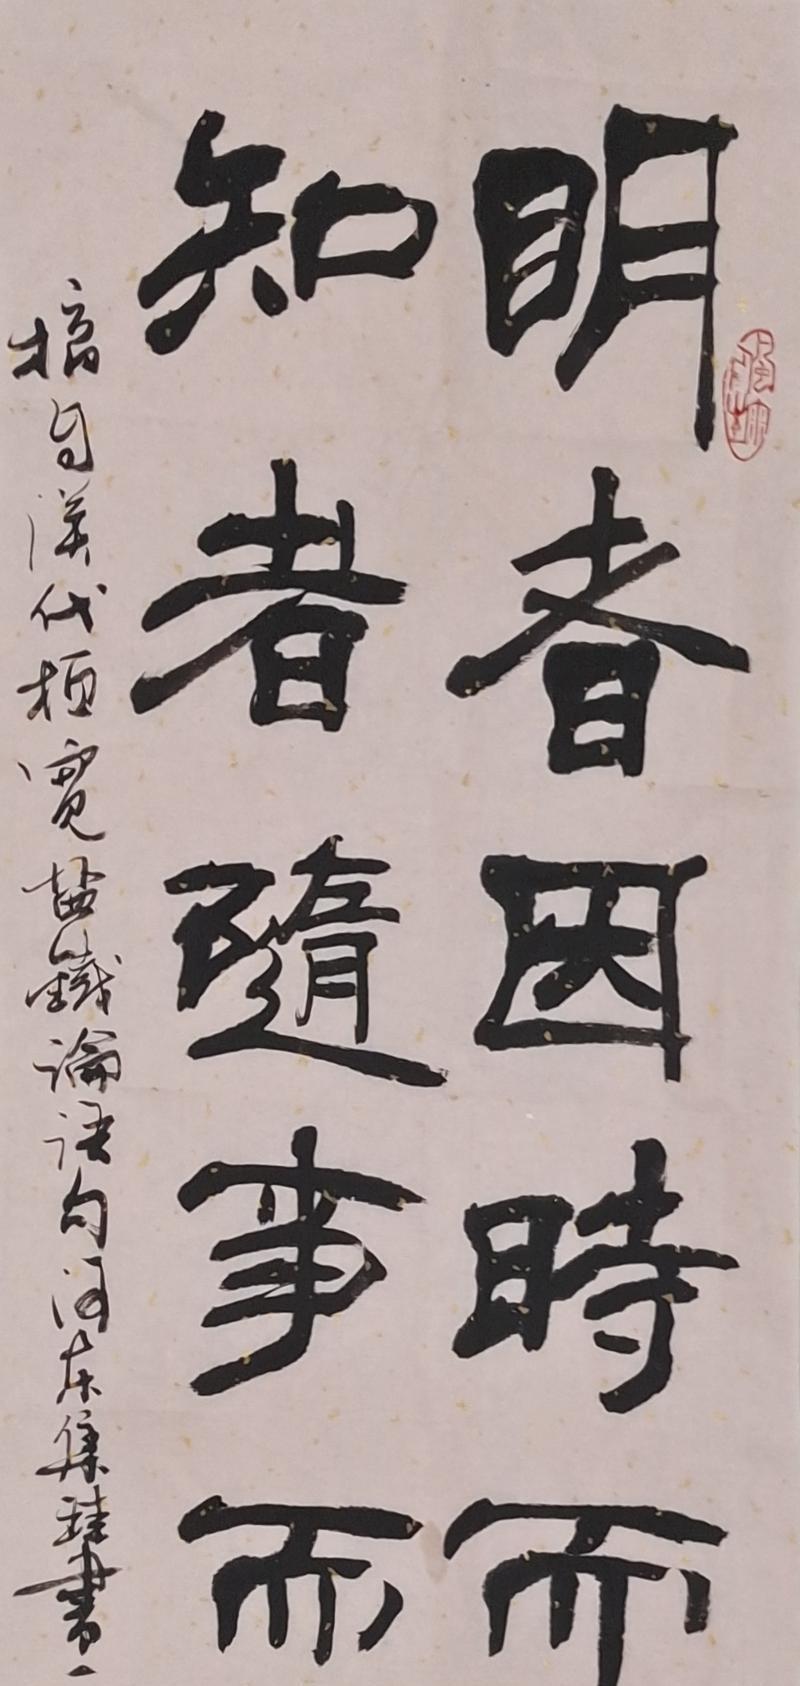 明者因時而
知者隨事而
摘自漢代桓寬盐鐵論語句河东集珪書